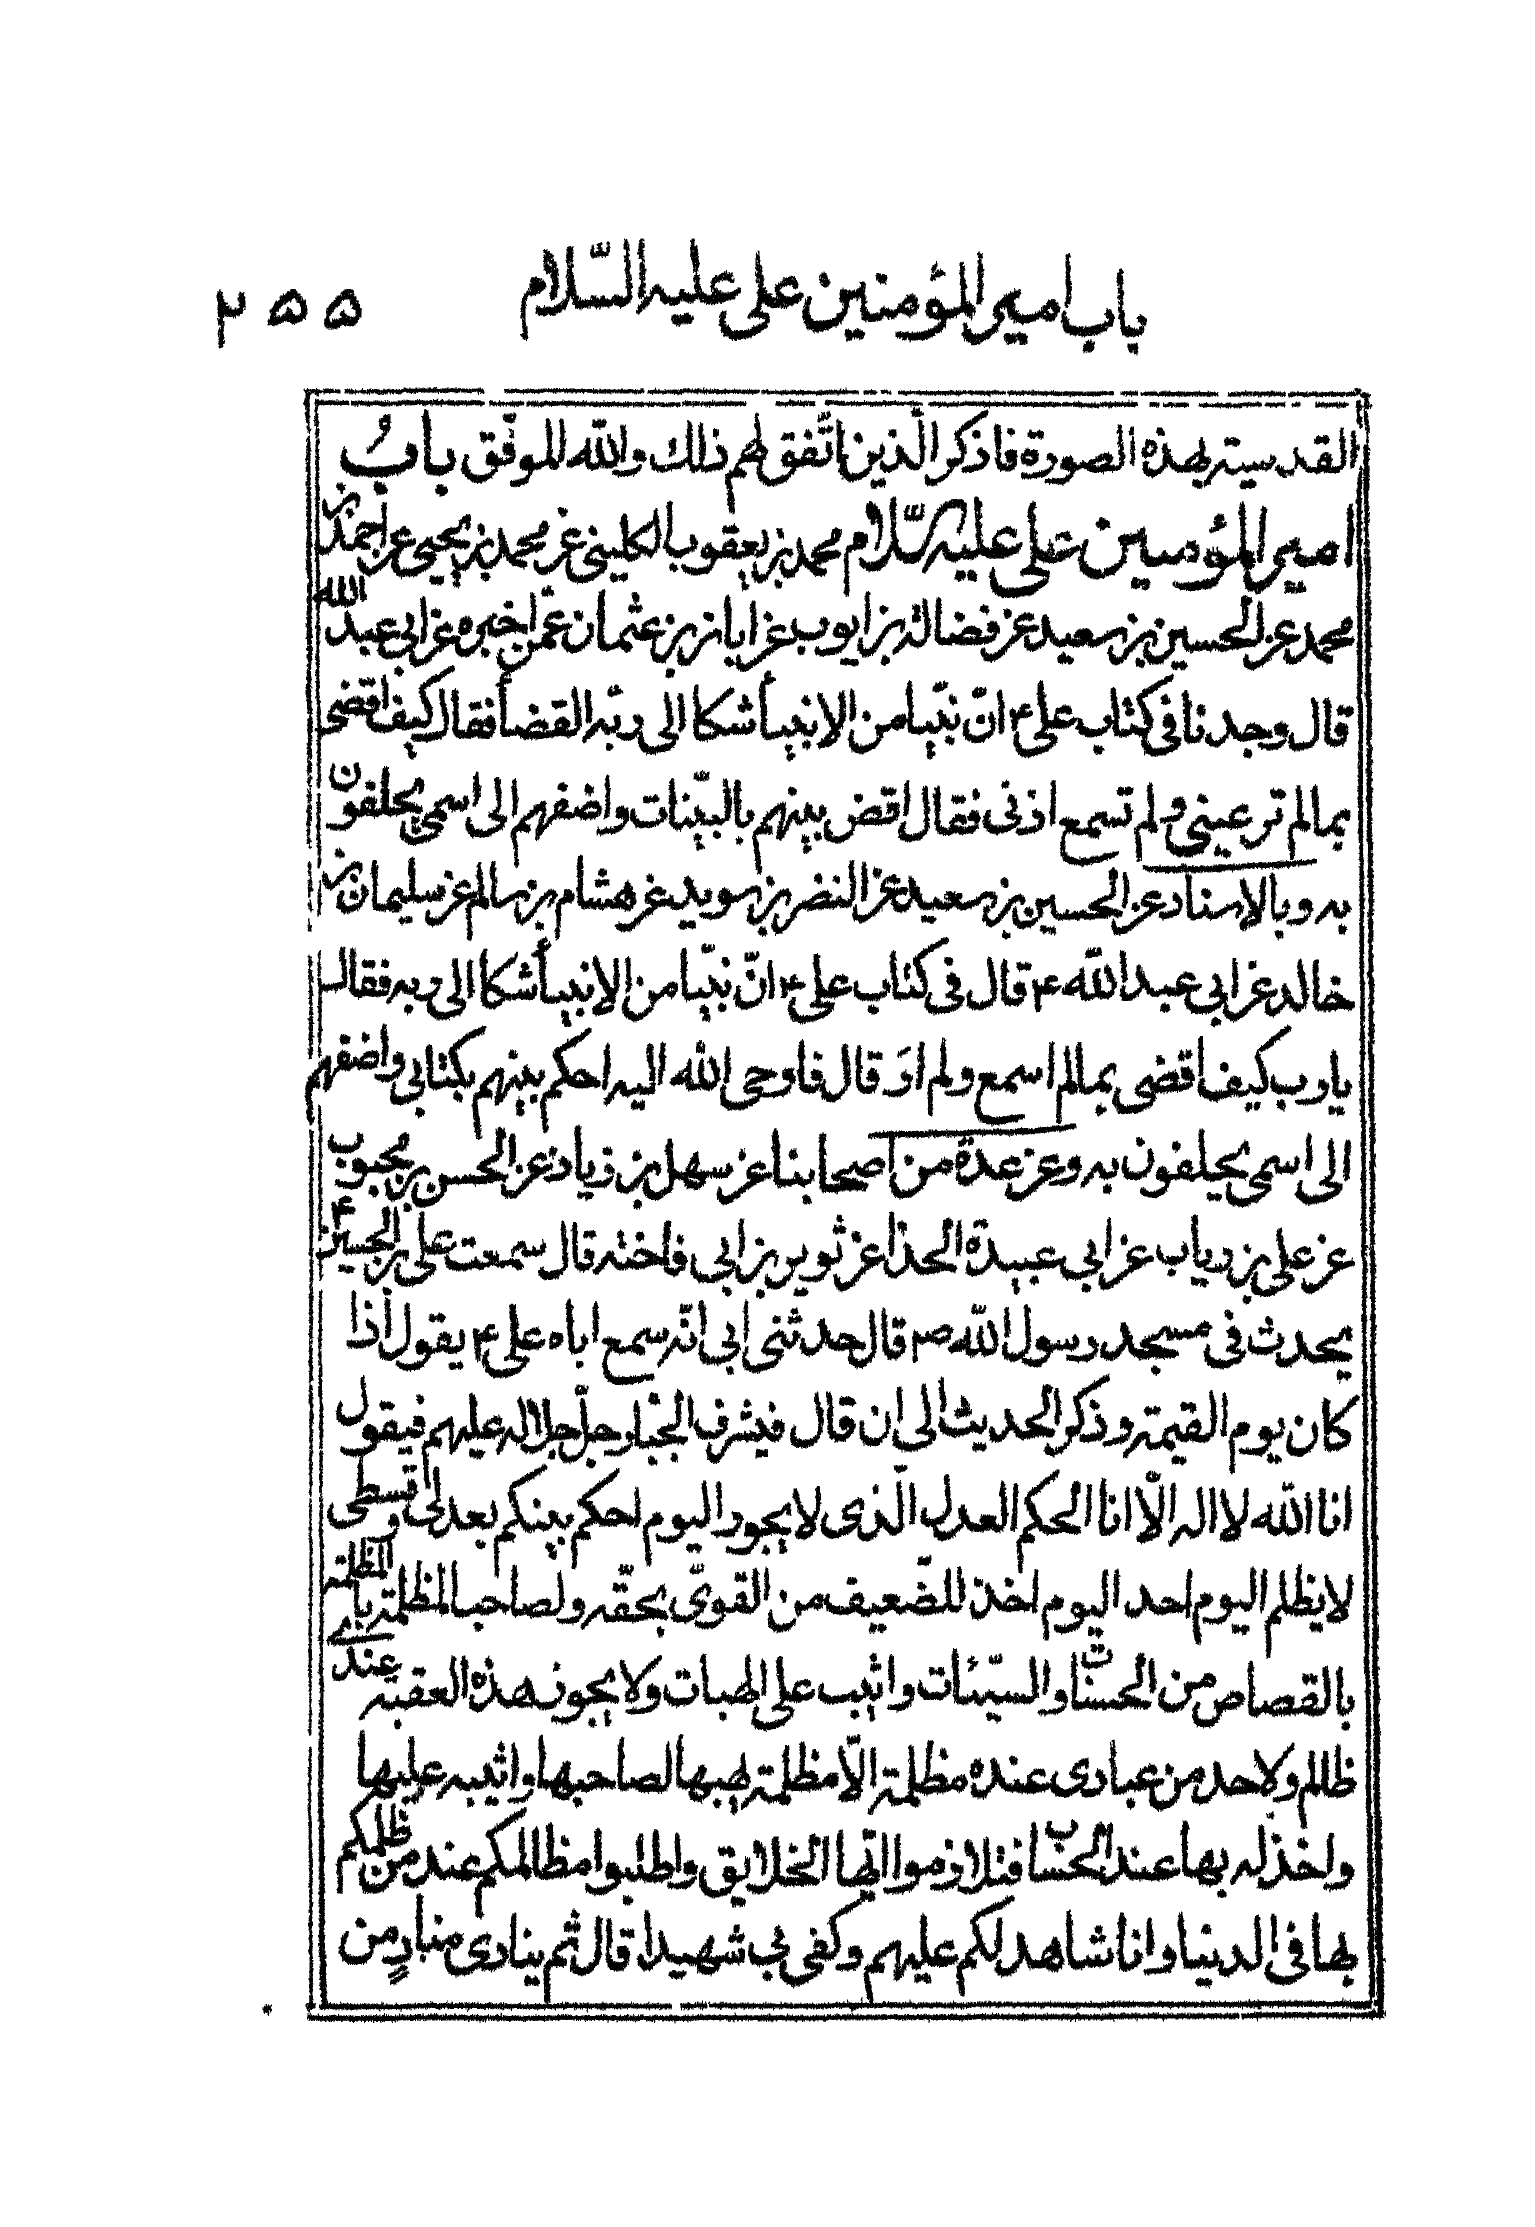 باب امير المؤمنين على عليه السّلام ٢٥٥
القدسيته بهذه الصورة فاذكر الّذين اتّفق لهم ذلك والله الموفّق بابُ
امير المؤمنين على عليه السّلام محمد بن يعقوب الكلينى عن محمد بن يحيى عن احمد بن
محمد عن الحسين بن سعيد عن فضالة بن ايوب عن ابان بن عثمان عمّن اخبره عن ابى عبد الله
قال وجدنا فى كتاب على ع انّ نبيّا من الانبيأ شكا الى ربّه القضأ فقال كيف اقضى
بما لم تر عينى ولم تسمع اذنى فقال اقض بينهم بالبيّنات واضفهم الى اسمى يحلفون
به وبالاسناد عن الحسين بن سعيد عن النضر بن سويد عن هشام بن سالم عن سليمان بن
خالد عن ابى عبد الله ع قال فى كتاب على ع انّ نبيّا من الانبيأ شكا الى ربه فقال
يارب كيف اقضى بما لم اسمع ولم ارَ قال فاوحى الله اليه احكم بينهم بكتابى واضفهم
الى اسمى يحلفون به وعن عدة من اصحابنا عن سهل بن زياد عن الحسن بن محبوب
عن على بن رياب عن ابى عبيدة الحذا عن ثوير بن ابى فاخته قال سمعت على بن الحسين ع
يحدث فى مسجد رسول الله ص قال حدثنى ابى انّه سمع اباه على ع يقول اذا
كان يوم القيمته وذكر الحديث الى ان قال فيشرف الجبّار جلّ جلاله عليهم فيقول
انا الله لا اله الّا انا الحكم العدل الّذى لا يجور اليوم احكم بينكم بعدلى وقسطى
لا يظلم اليوم احد اليوم اخذ للضّعيف من القوىّ بحقّه ولصاحب المظلمته بالمظلمته
بالقصاص من الحسنات والسيّئات واثيب على الهبات ولا يجوز هذه العقبته عندى
ظالم ولاحد من عبادى عنده مظلمته الّا مظلمته يهبها لصاحبها واثيبه عليها
واخذ له بها عند الحساب فتلازموا ايّها الخلايق واطلبوا مظالمكم عند من ظلمكم
بها فى الدينا وانا شاهد لكم عليهم وكفى بى شهيدا قال ثم ينادى منادٍ من